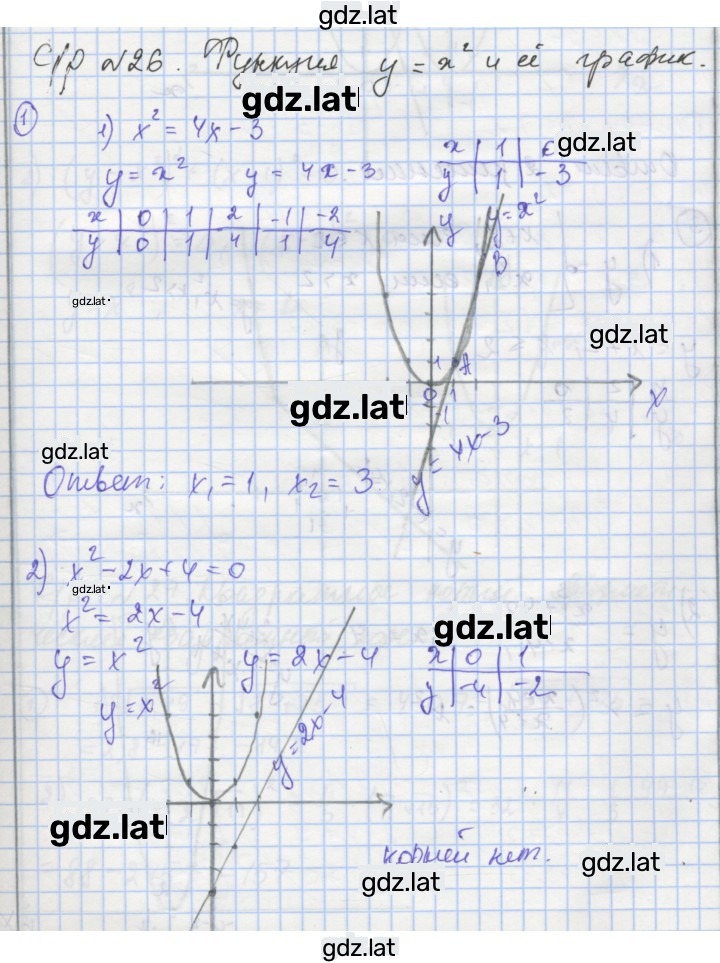 gdz.lat
С/р №26. Функция y = x² и её график.
gdz.lat
① 1) x² = 4x - 3
gdz.lat
y = x² y = 4x - 3
x | 1 |
y | 1 | -3
x | 0 | 1 | 2 | -1 | -2
y | 0 | 1 | 4 | 1 | 4
y y = x²
B
gdz.lat
gdz.lat
1 A
0 1 x
gdz.lat
-1
gdz.lat
y = 4x - 3
Ответ: x₁ = 1, x₂ = 3
2) x² - 2x + 4 = 0
gdz.lat
x² = 2x - 4
gdz.lat
y = x² y = 2x - 4
x | 0 | 1
y | -4 | -2
y = x²
y = 2x - 4
gdz.lat
корней нет.
gdz.lat
gdz.lat
gdz.lat